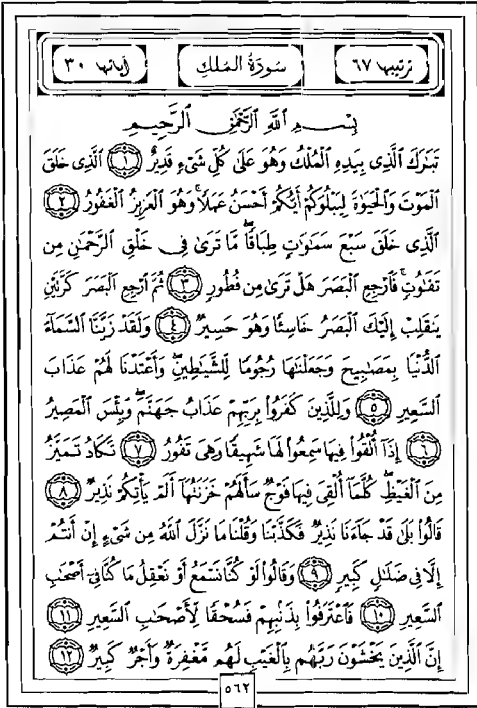 ترتيبها ٦٧ سُورَةُ المُلكِ آياتها ٣٠
بِسْمِ ٱللَّهِ ٱلرَّحْمَٰنِ ٱلرَّحِيمِ
تَبَٰرَكَ ٱلَّذِى بِيَدِهِ ٱلْمُلْكُ وَهُوَ عَلَىٰ كُلِّ شَىْءٍ قَدِيرٌ ١ ٱلَّذِى خَلَقَ
ٱلْمَوْتَ وَٱلْحَيَوٰةَ لِيَبْلُوَكُمْ أَيُّكُمْ أَحْسَنُ عَمَلًا ۚ وَهُوَ ٱلْعَزِيزُ ٱلْغَفُورُ ٢
ٱلَّذِى خَلَقَ سَبْعَ سَمَٰوَٰتٍ طِبَاقًا ۖ مَّا تَرَىٰ فِى خَلْقِ ٱلرَّحْمَٰنِ مِن
تَفَٰوُتٍ ۖ فَٱرْجِعِ ٱلْبَصَرَ هَلْ تَرَىٰ مِن فُطُورٍ ٣ ثُمَّ ٱرْجِعِ ٱلْبَصَرَ كَرَّتَيْنِ
يَنقَلِبْ إِلَيْكَ ٱلْبَصَرُ خَاسِئًا وَهُوَ حَسِيرٌ ٤ وَلَقَدْ زَيَّنَّا ٱلسَّمَآءَ
ٱلدُّنْيَا بِمَصَٰبِيحَ وَجَعَلْنَٰهَا رُجُومًا لِّلشَّيَٰطِينِ ۖ وَأَعْتَدْنَا لَهُمْ عَذَابَ
ٱلسَّعِيرِ ٥ وَلِلَّذِينَ كَفَرُوا۟ بِرَبِّهِمْ عَذَابُ جَهَنَّمَ ۖ وَبِئْسَ ٱلْمَصِيرُ
٦ إِذَآ أُلْقُوا۟ فِيهَا سَمِعُوا۟ لَهَا شَهِيقًا وَهِىَ تَفُورُ ٧ تَكَادُ تَمَيَّزُ
مِنَ ٱلْغَيْظِ ۖ كُلَّمَآ أُلْقِىَ فِيهَا فَوْجٌ سَأَلَهُمْ خَزَنَتُهَآ أَلَمْ يَأْتِكُمْ نَذِيرٌ ٨
قَالُوا۟ بَلَىٰ قَدْ جَآءَنَا نَذِيرٌ فَكَذَّبْنَا وَقُلْنَا مَا نَزَّلَ ٱللَّهُ مِن شَىْءٍ إِنْ أَنتُمْ
إِلَّا فِى ضَلَٰلٍ كَبِيرٍ ٩ وَقَالُوا۟ لَوْ كُنَّا نَسْمَعُ أَوْ نَعْقِلُ مَا كُنَّا فِىٓ أَصْحَٰبِ
ٱلسَّعِيرِ ١٠ فَٱعْتَرَفُوا۟ بِذَنۢبِهِمْ فَسُحْقًا لِّأَصْحَٰبِ ٱلسَّعِيرِ ١١
إِنَّ ٱلَّذِينَ يَخْشَوْنَ رَبَّهُم بِٱلْغَيْبِ لَهُم مَّغْفِرَةٌ وَأَجْرٌ كَبِيرٌ ١٢
٥٦٢